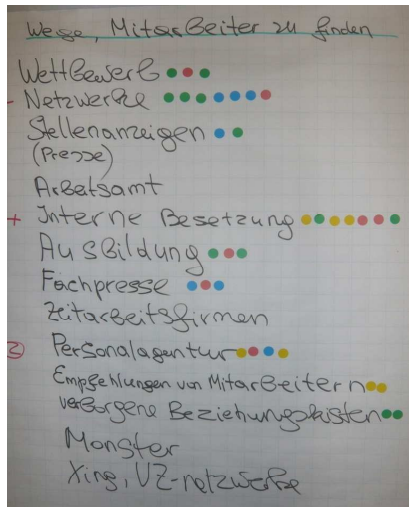 Wege, Mitarbeiter zu finden
Wettbewerb
- Netzwerke
Stellenanzeigen
(Presse)
Arbeitsamt
+ Interne Besetzung
Ausbildung
Fachpresse
Zeitarbeitsfirmen
Personalagentur
Empfehlungen von Mitarbeitern
verborgene Beziehungskisten
Monster
Xing, VZ-netzwerke